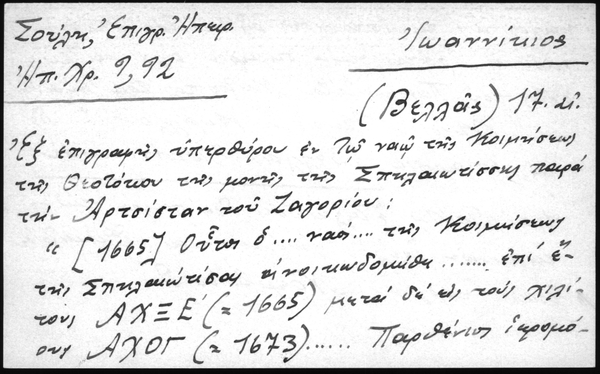 Σούλη, Ἐπιγρ. Ἠπειρ.
Ἠπ. Χρ. 9, 92
Ἰωαννίκιος
(Βελλᾶς) 17. αἰ.
Ἐξ ἐπιγραφῆς ὑπερθύρου ἐν τῷ ναῷ τῆς Κοιμήσεως
τῆς Θεοτόκου τῆς μονῆς τῆς Σπηλαιωτίσσης παρὰ
τὴν Ἀρτσίσταν τοῦ Ζαγορίου:
" [1665] Οὗτος ὁ .... ναὸς .... τῆς Κοιμήσεως
τῆς Σπηλαιωτίσας εἰνοικωδομήθη ........ ἐπὶ ἔ-
τους ΑΧΞΕ´ (= 1665) μετὰ δὲ εἰς τοὺς χιλί-
ους ΑΧΟΓ (= 1673)...... Παρθένιος ἱερομό-